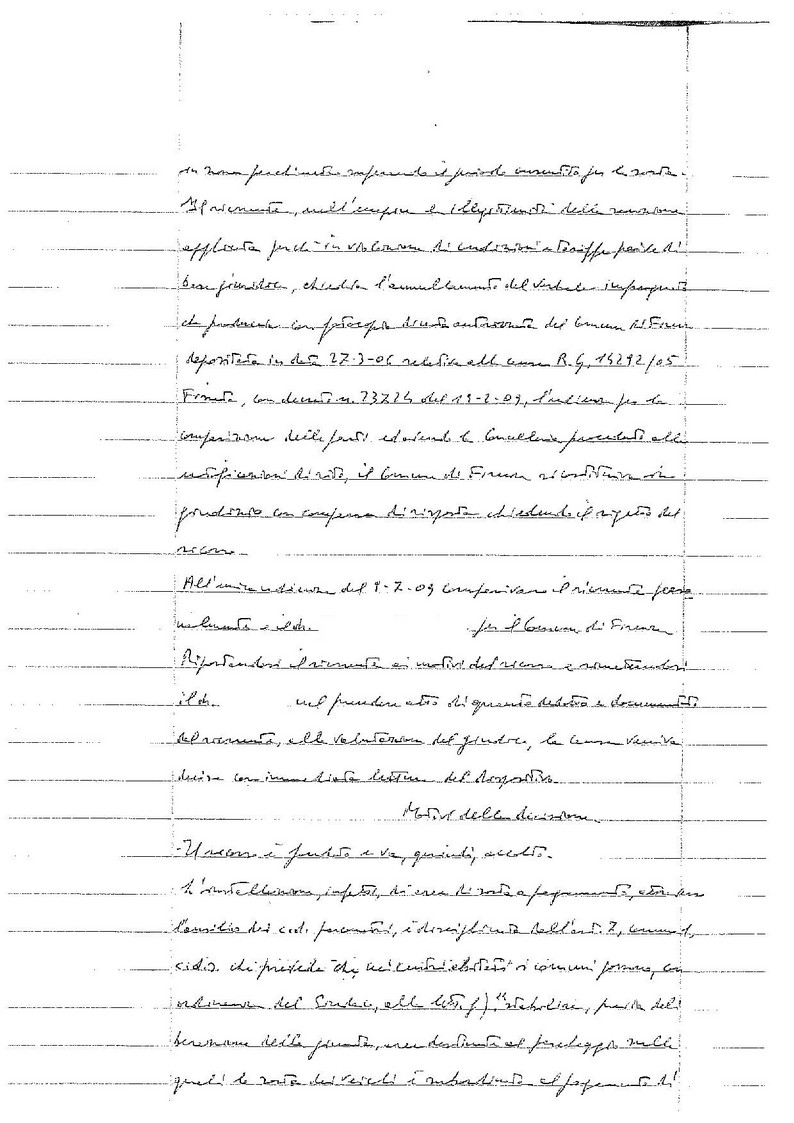 in zona parchimetro superando il periodo consentito per la sosta.
Il ricorrente, nell'eccepire l'illegittimità della sanzione
applicata perché in violazione di condizioni e tariffe prive di
base giuridica, chiedeva l'annullamento del verbale impugnato
che produceva in fotocopia
depositata in data 27-3-06 relativa alla causa R.G. 14292/05
Fissata, con decreto n. 23724 del 19-2-09, l'udienza per la
comparizione delle parti ed avendo la Cancelleria proceduto alle
notificazioni di rito, il Comune di Firenze si costituiva in
giudizio con comparsa di risposta chiedendo il rigetto del
ricorso.
All'unica udienza del 9-7-09 comparivano il ricorrente perso
nalmente e il dr. per il Comune di Firenze
Riportandosi il ricorrente ai motivi del ricorso e rimettendosi
il dr. nel prendere atto di quanto dedotto e documentato
dal ricorrente, alla valutazione del giudice, la causa veniva
decisa con immediata lettura del dispositivo
Motivi della decisione
- Il ricorso è fondato e va, quindi, accolto.
L'installazione, infatti, di aree di sosta a pagamento,
l'ausilio dei c.d. parcometri, è disciplinata dall'art. 7, comma 1,
c.d.s. che prevede che nei centri abitati i comuni possono, con
ordinanza del Sindaco, alla lett. f) "stabilire, previa deli
berazione della giunta, aree destinate al parcheggio sulle
quali la sosta dei veicoli è subordinata al pagamento di